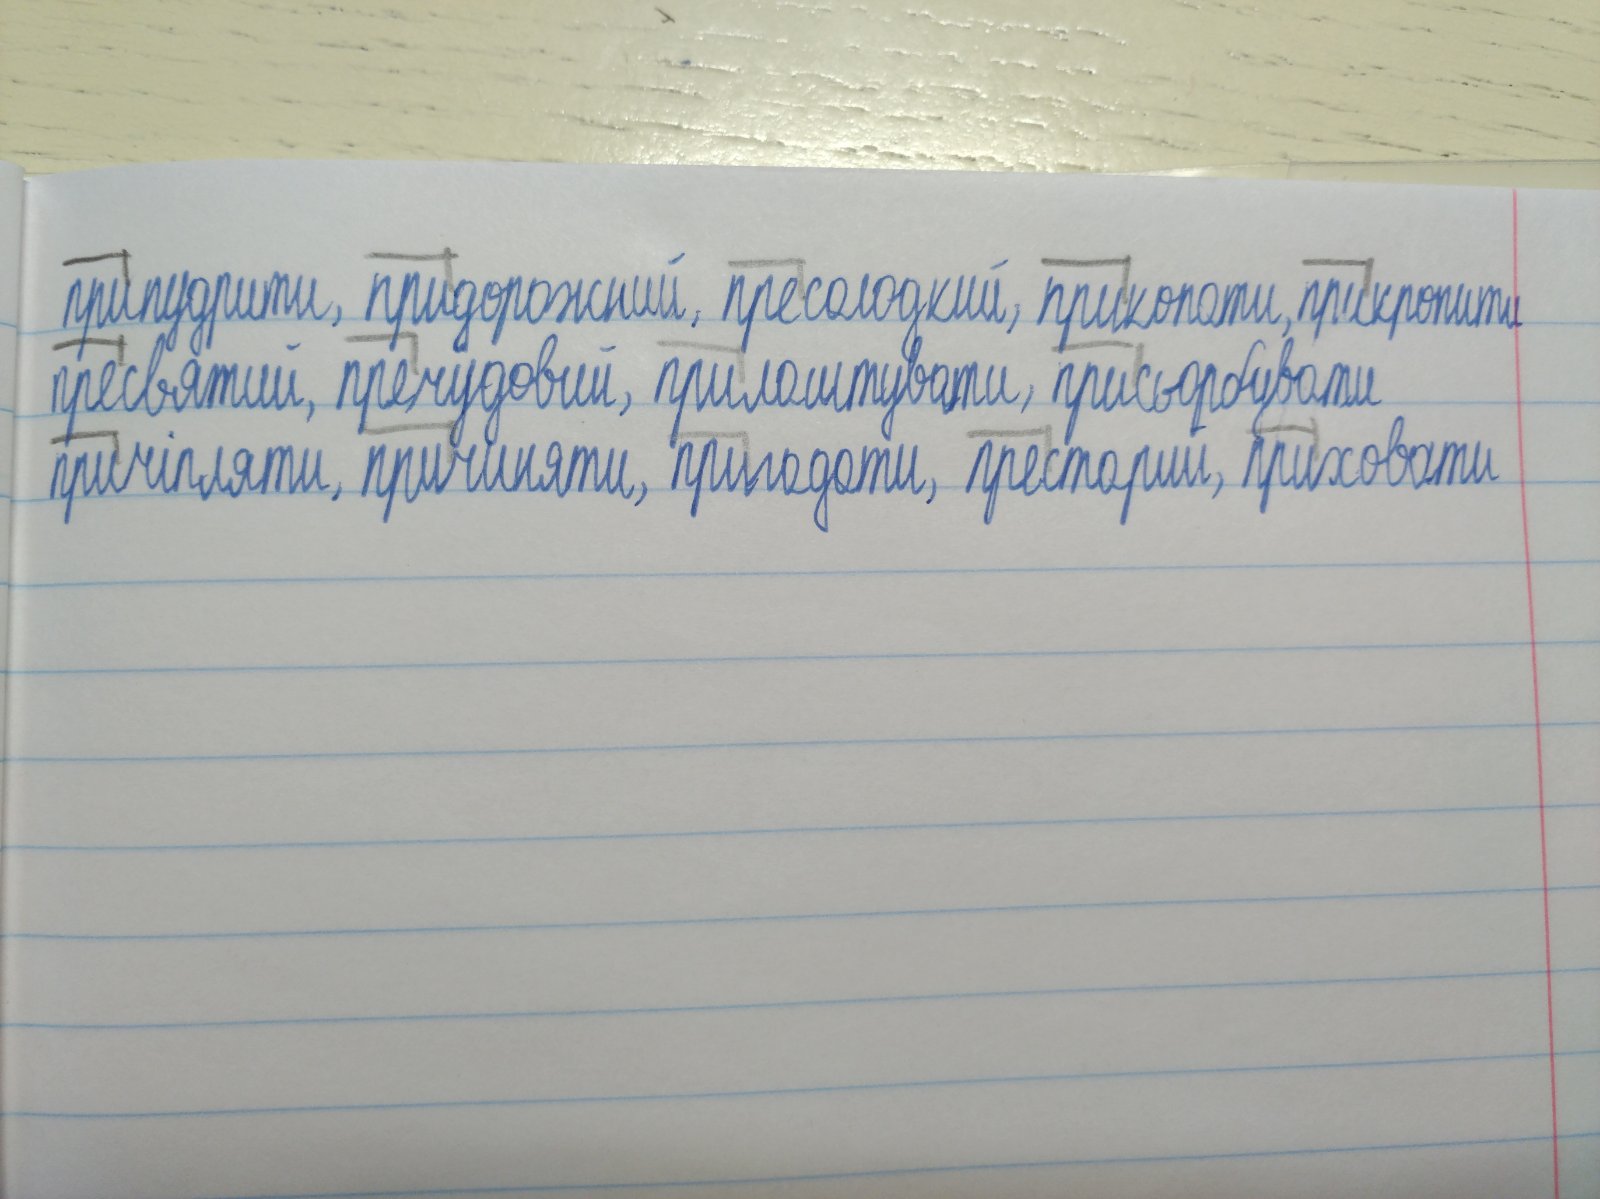 припудрити, придорожний, пресолодкий, прикопати, прикропити
пресвятий, пречудовий, прилаштувати, присьорбувати
причіпляти, причиняти, пригадати, престарий, приховати